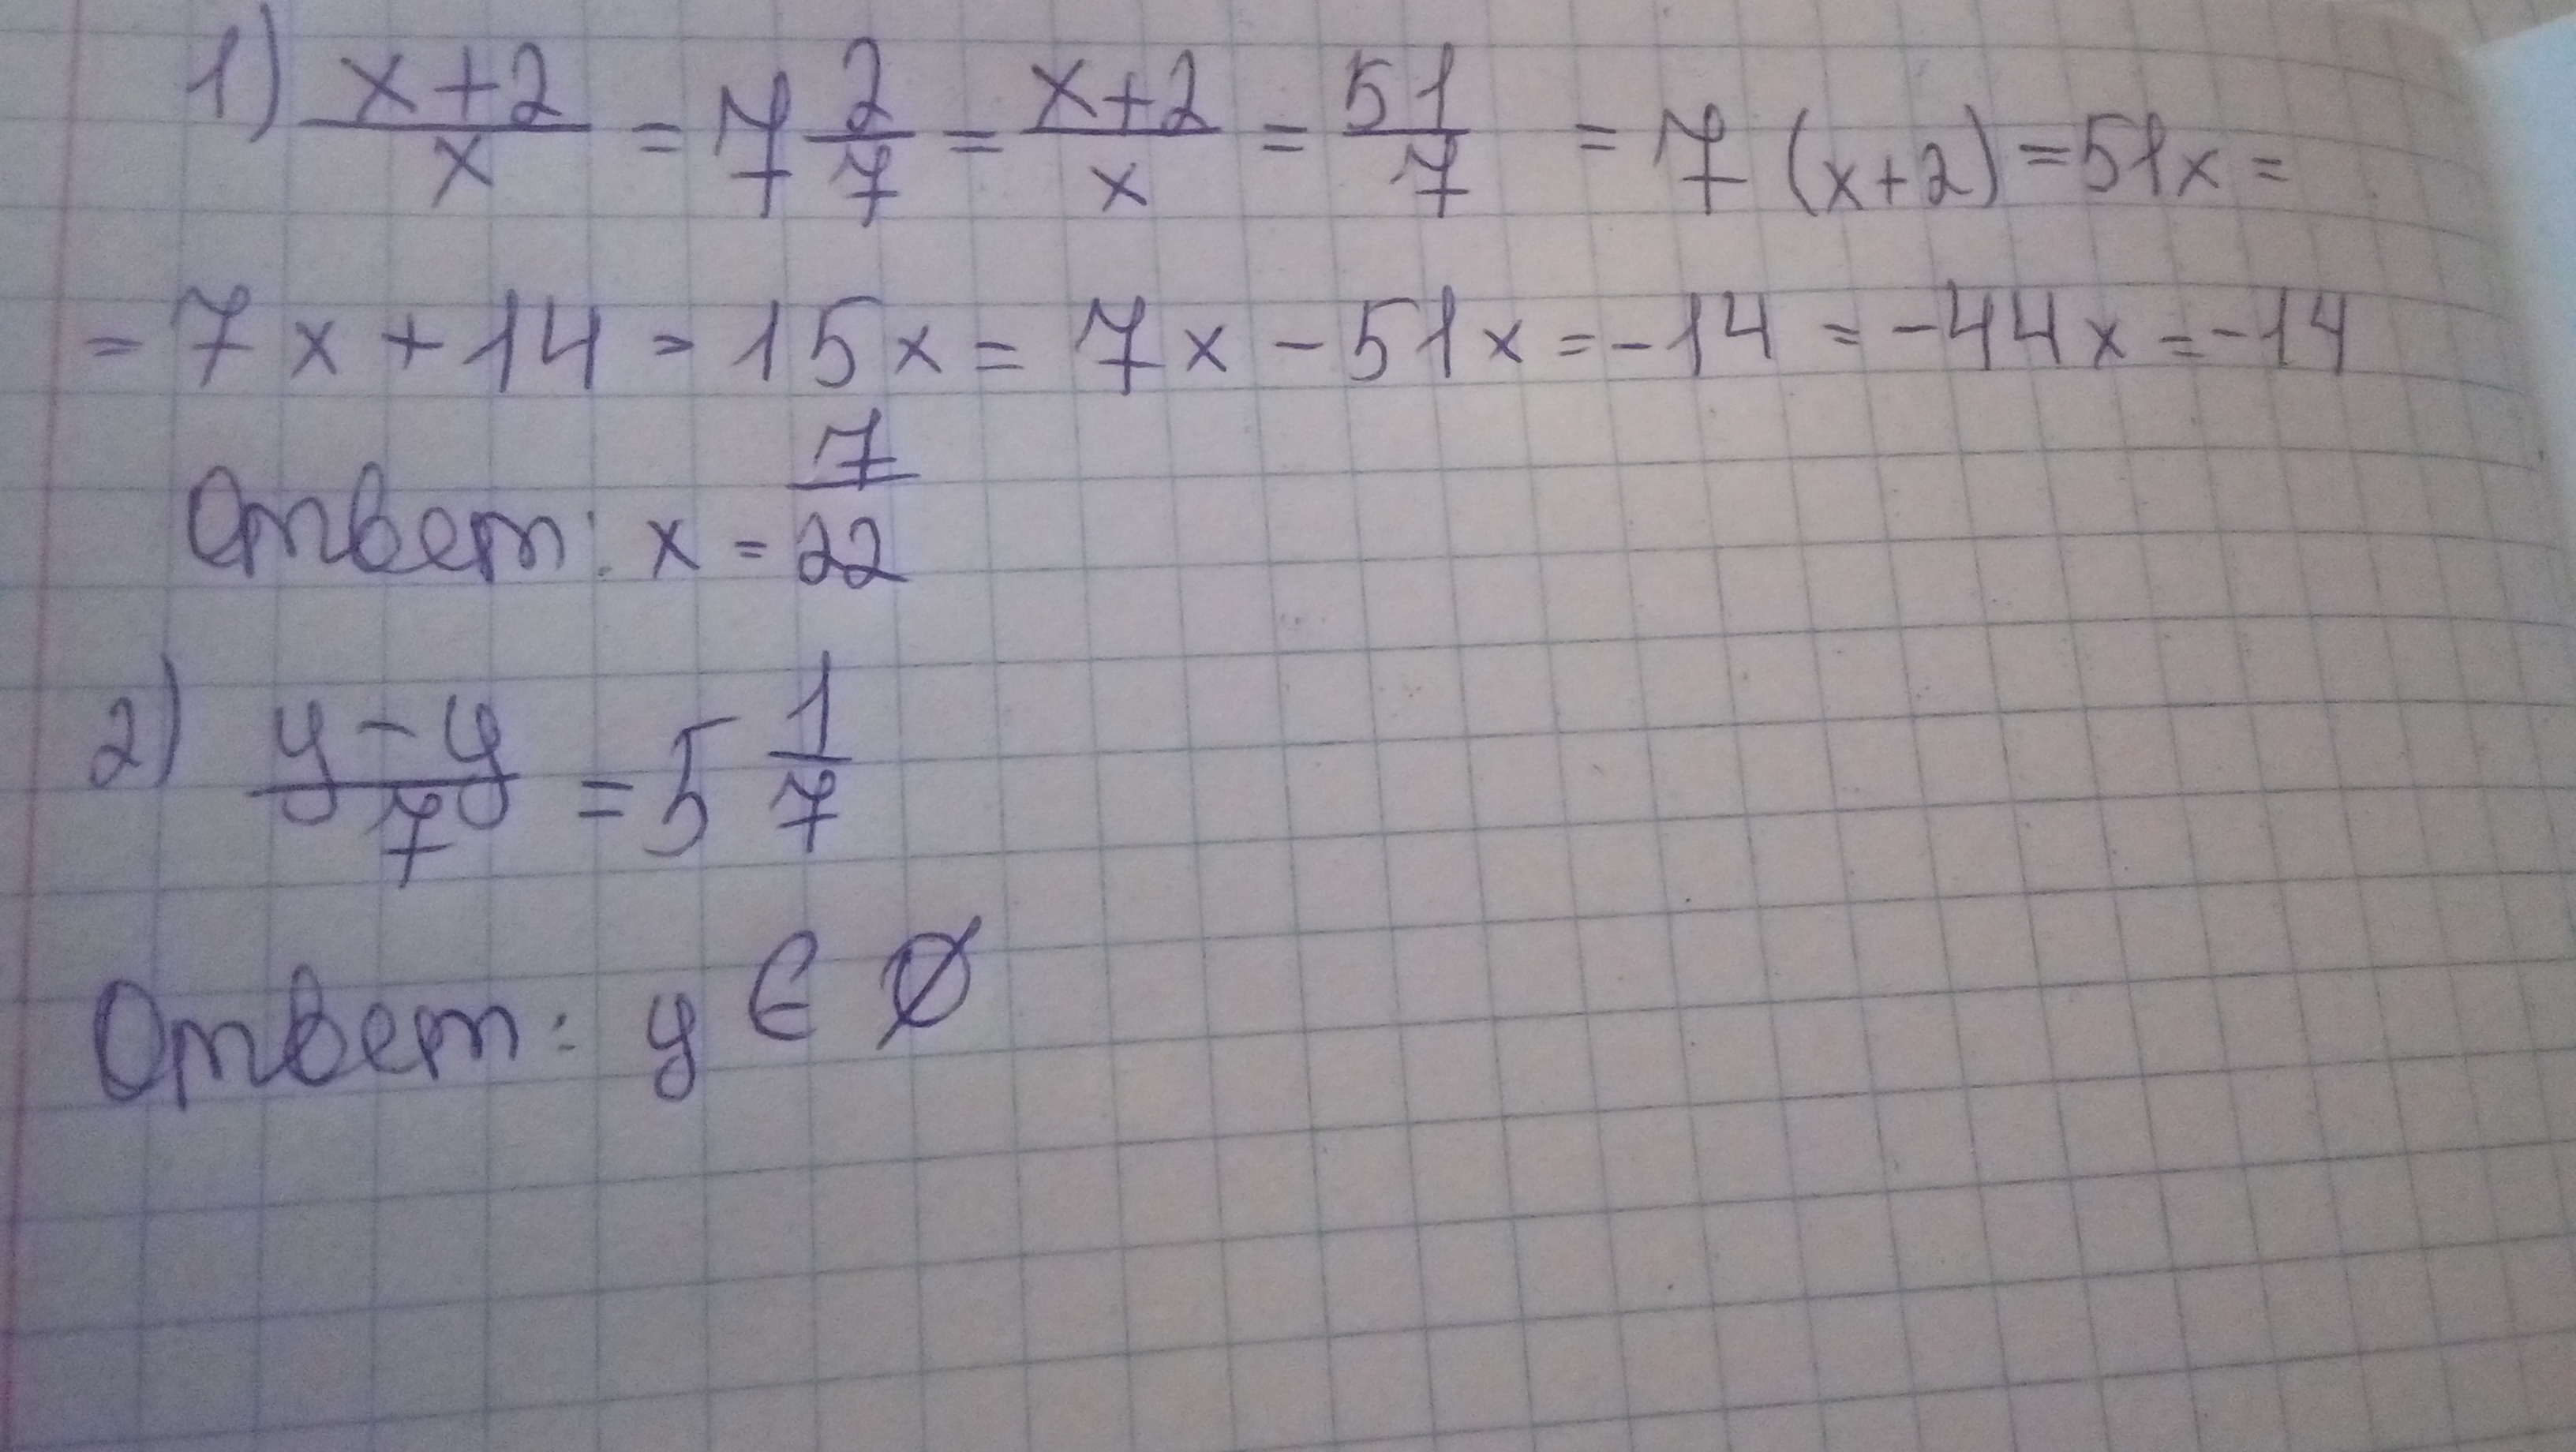 1) (x+2)/x = 7 2/7 = (x+2)/x = 51/7 = 7 (x+2) = 51x =
= 7x + 14 = 15x = 7x - 51x = -14 = -44x = -14
Ответ: x = 7/22
2) (y - y)/7 = 5 1/7
Ответ: y ∈ ∅